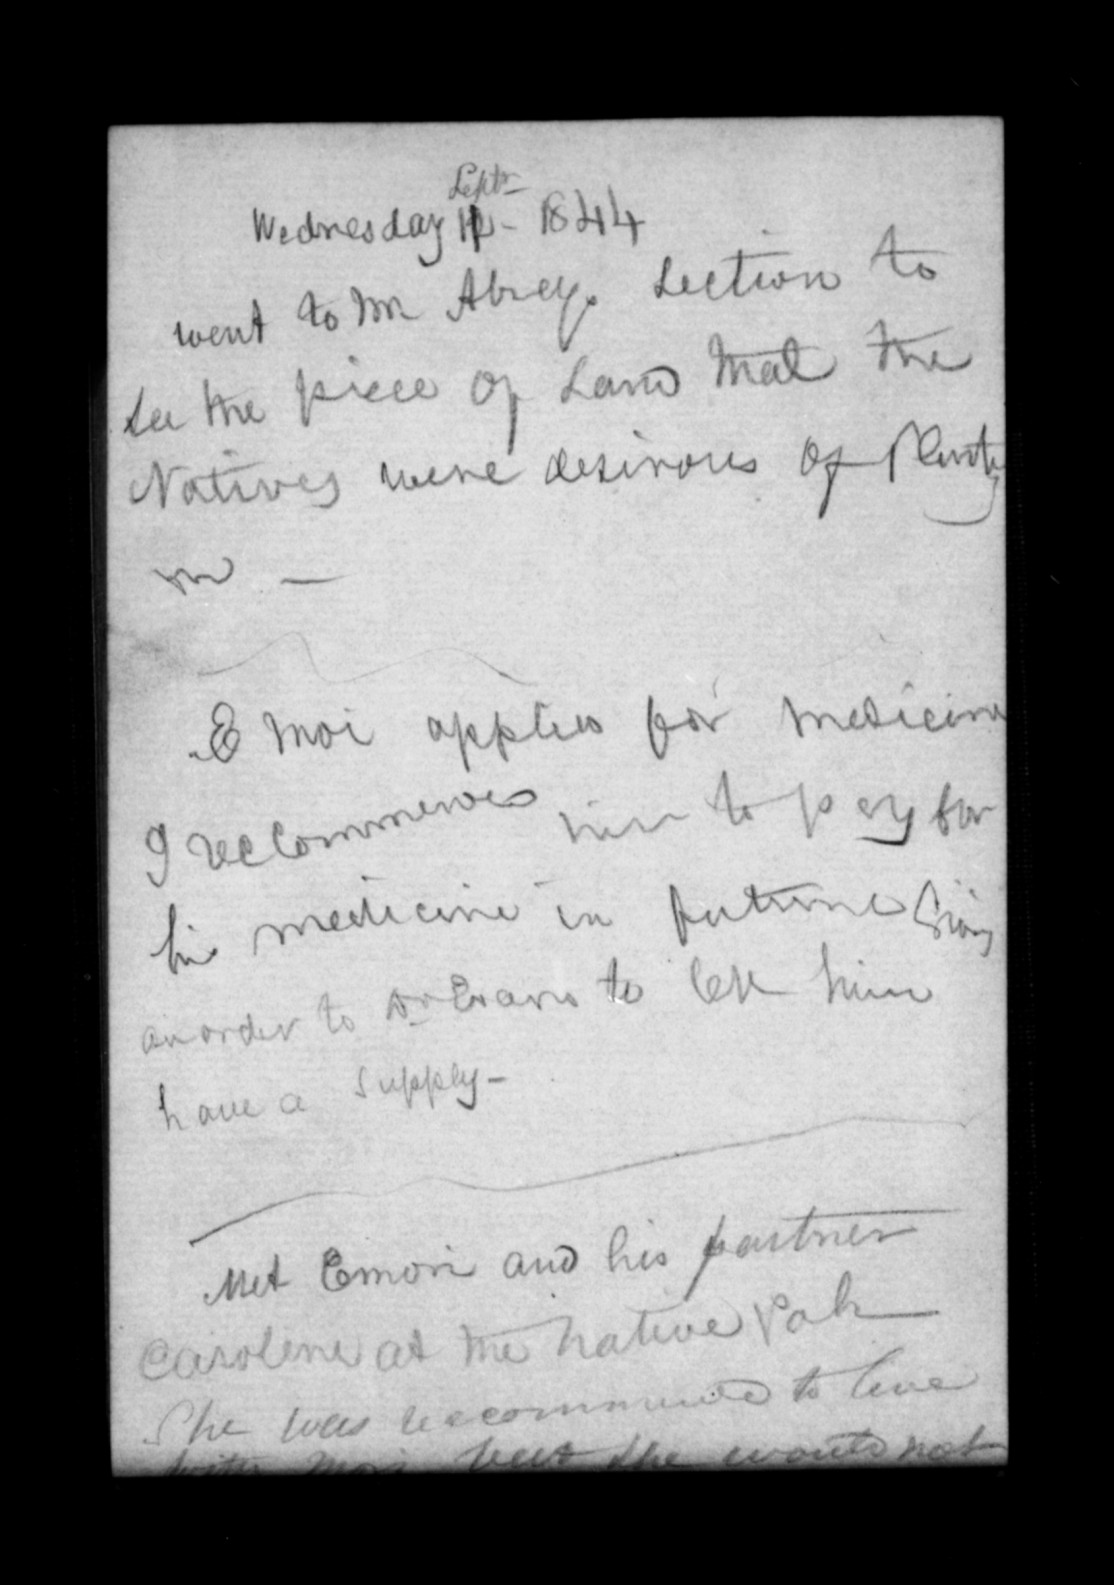 Septr
Wednesday 11 - 1844
went to Mr Abreys Section to
see the piece of Land that the
Natives were desirous of Planty
in —
E Moi applies for medicine
I reccommended him to pay for
his medicine in future Giving
an order to Dr Evans to let him
have a Supply -
Met Emori and his partner
Caroline at the Native Pah
She was reccommended to live
with Moi but she would not